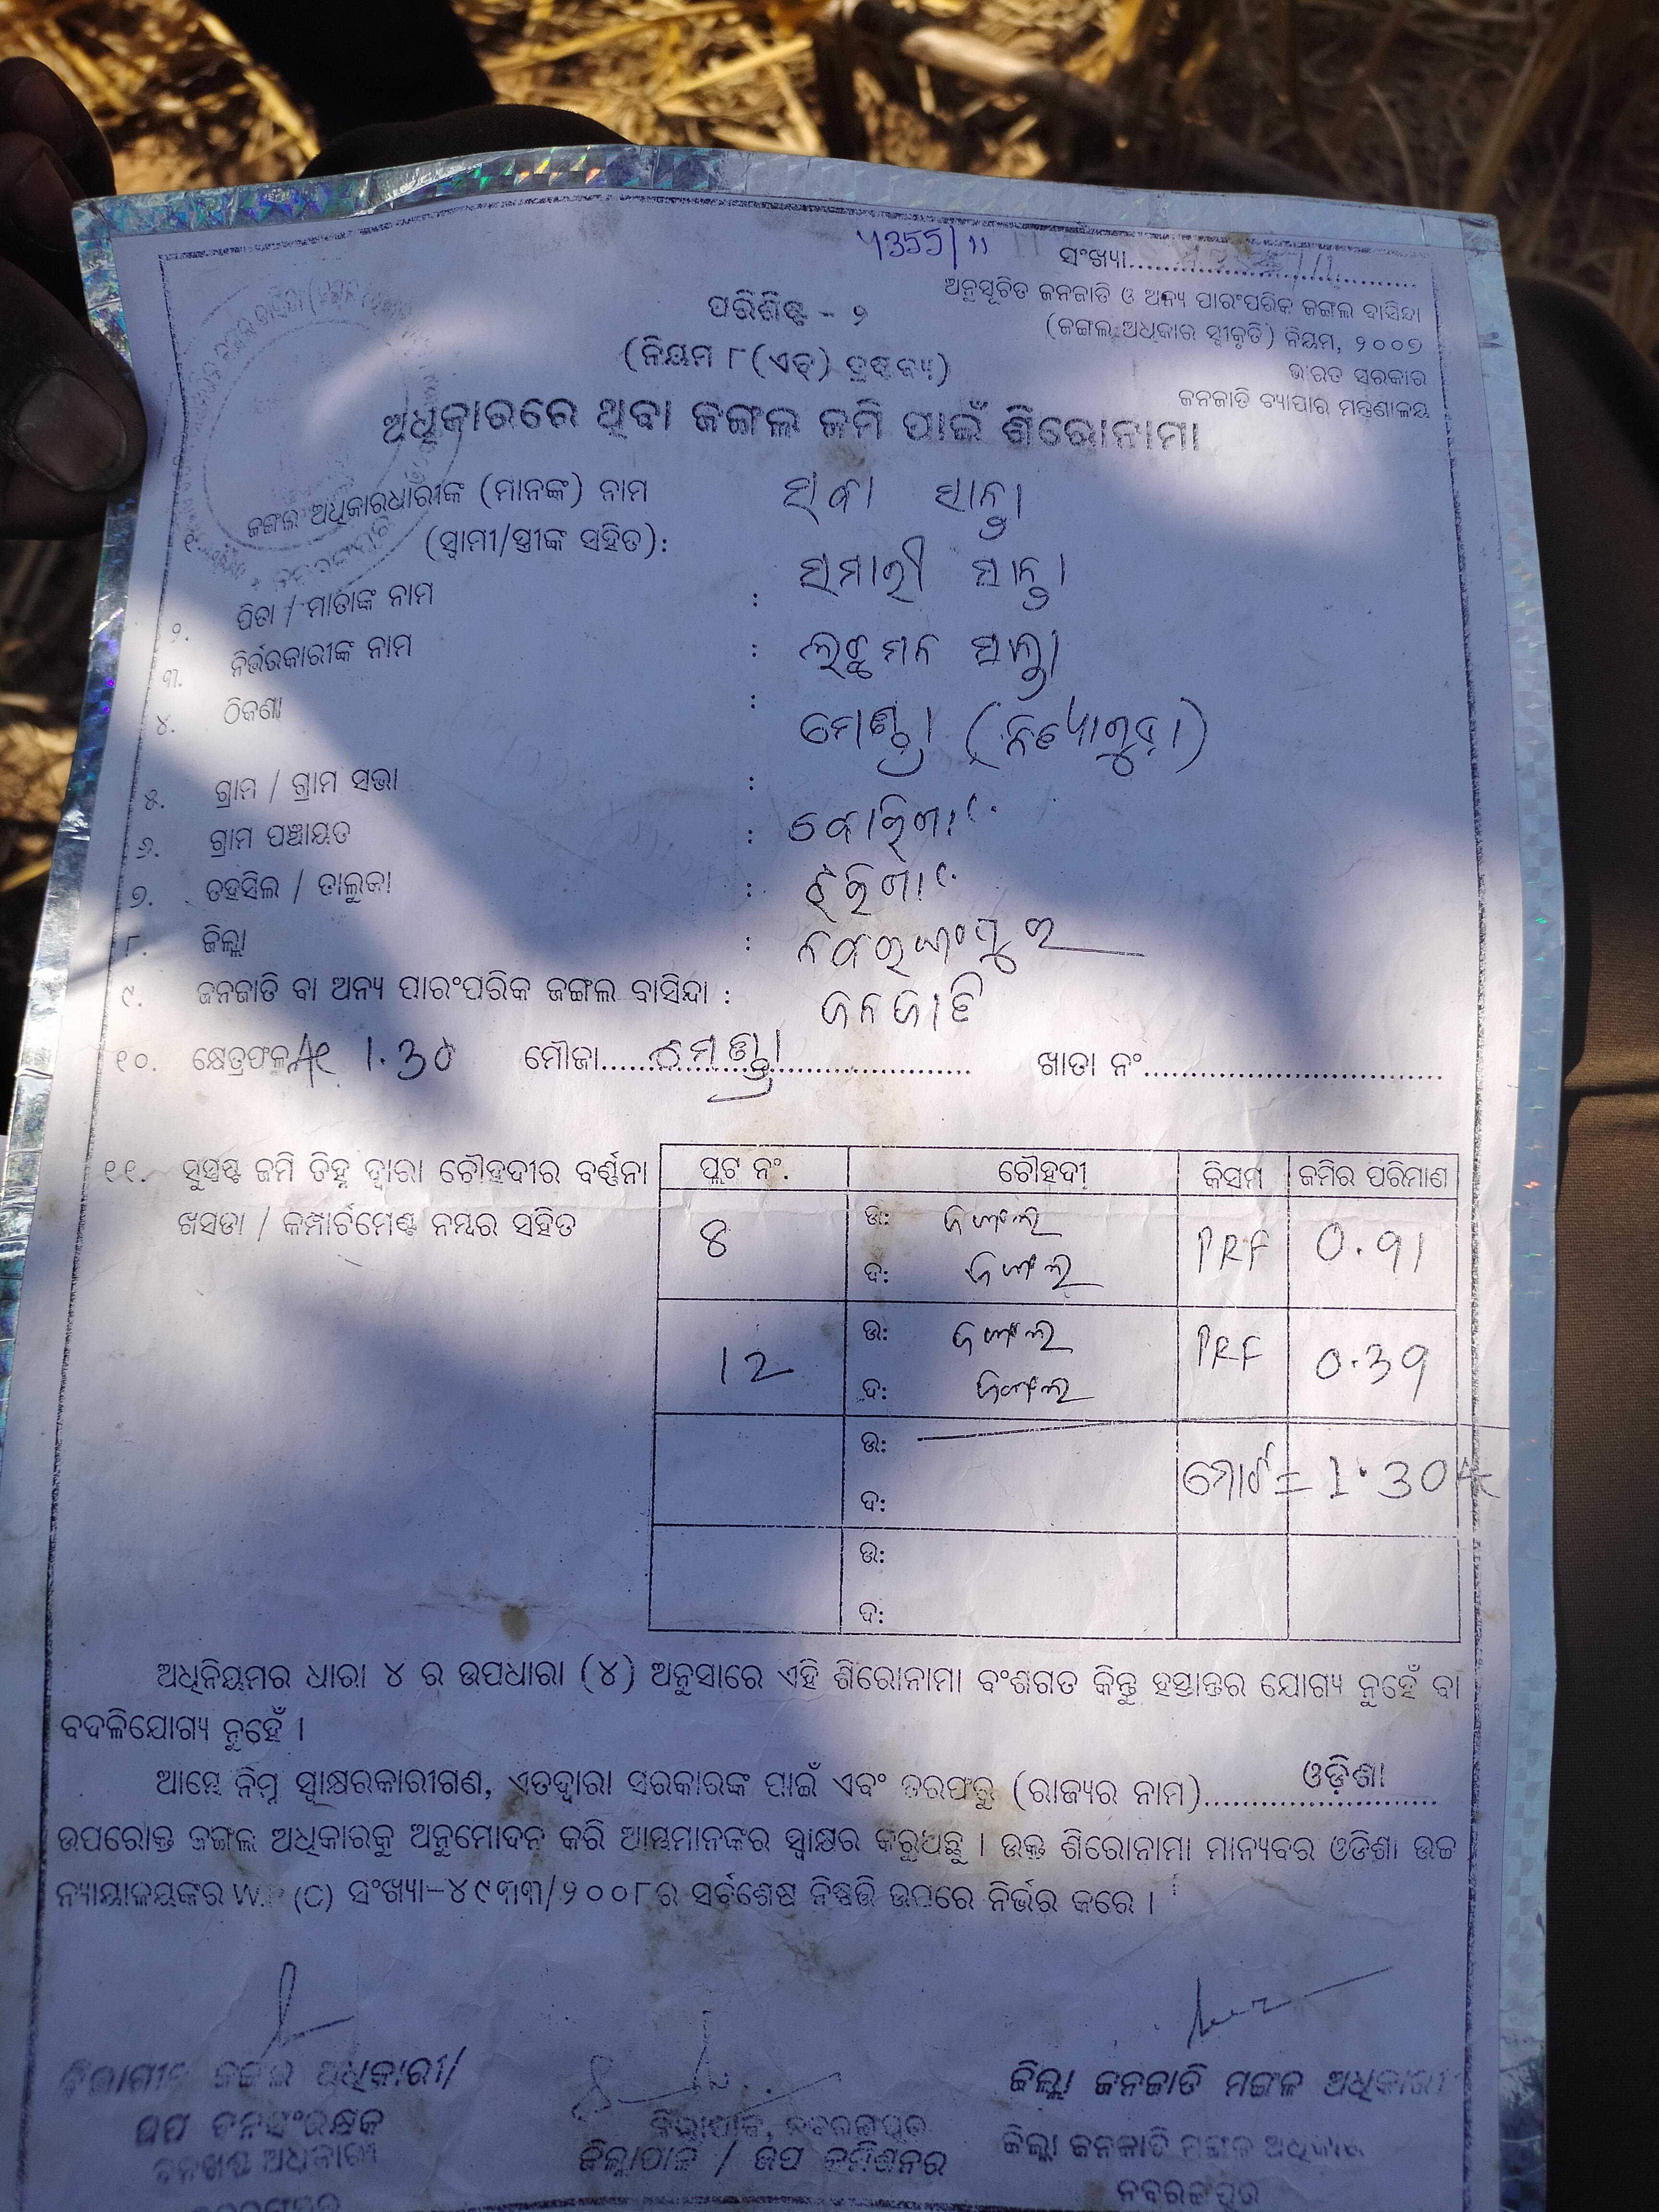 4355/11
ସଂଖ୍ୟା
ଅନୁସୂଚିତ ଜନଜାତି ଓ ଅନ୍ୟ ପାରଂପରିକ ଜଙ୍ଗଲ ବାସିନ୍ଦା
(ଜଙ୍ଗଲ ଅଧିକାର ସ୍ୱୀକୃତି) ନିୟମ, ୨୦୦୭
ଭାରତ ସରକାର
ଜନଜାତି ବ୍ୟାପାର ମନ୍ତ୍ରଣାଳୟ
ପରିଶିଷ୍ଟ - ୨
(ନିୟମ ୮(ଏଚ୍) ଦ୍ରଷ୍ଟବ୍ୟ)
ଅଧିକାରରେ ଥିବା ଜଙ୍ଗଲ ଜମି ପାଇଁ ଶିରୋନାମା
୧. ଜଙ୍ଗଲ ଅଧିକାରଧାରୀଙ୍କ (ମାନଙ୍କ) ନାମ
(ସ୍ୱାମୀ/ସ୍ତ୍ରୀଙ୍କ ସହିତ):
୨. ପିତା / ମାତାଙ୍କ ନାମ :
୩. ନିର୍ଭରକାରୀଙ୍କ ନାମ :
୪. ଠିକଣା :
୫. ଗ୍ରାମ / ଗ୍ରାମ ସଭା :
୬. ଗ୍ରାମ ପଞ୍ଚାୟତ :
୭. ତହସିଲ / ତାଲୁକା : ଝରିଗାଁ
୮. ଜିଲ୍ଲା : ନବରଙ୍ଗପୁର
୯. ଜନଜାତି ବା ଅନ୍ୟ ପାରଂପରିକ ଜଙ୍ଗଲ ବାସିନ୍ଦା : ଜନଜାତି
୧୦. କ୍ଷେତ୍ରଫଳ Ac 1.30 ମୌଜା..... ଖାତା ନଂ.....
୧୧. ସୁସ୍ପଷ୍ଟ ଜମି ଚିହ୍ନ ଦ୍ୱାରା ଚୌହଦୀର ବର୍ଣ୍ଣନା
ଖସଡା / କମ୍ପାର୍ଟମେଣ୍ଟ ନମ୍ବର ସହିତ
ପ୍ଲଟ ନଂ. ଚୌହଦୀ କିସମ ଜମିର ପରିମାଣ
8 ଉ: ଜଙ୍ଗଲ PRF 0.91
ଦ: ଜଙ୍ଗଲ
12 ଉ: ଜଙ୍ଗଲ PRF 0.39
ଦ: ଜଙ୍ଗଲ
ଉ: ମୋଟ = 1.30 Ac
ଦ:
ଉ:
ଦ:
ଅଧିନିୟମର ଧାରା ୪ ର ଉପଧାରା (୪) ଅନୁସାରେ ଏହି ଶିରୋନାମା ବଂଶଗତ କିନ୍ତୁ ହସ୍ତାନ୍ତର ଯୋଗ୍ୟ ନୁହେଁ ବା
ବଦଳିଯୋଗ୍ୟ ନୁହେଁ ।
ଆମ୍ଭେ ନିମ୍ନ ସ୍ୱାକ୍ଷରକାରୀଗଣ, ଏତଦ୍ୱାରା ସରକାରଙ୍କ ପାଇଁ ଏବଂ ତରଫରୁ (ରାଜ୍ୟର ନାମ).....ଓଡ଼ିଶା
ଉପରୋକ୍ତ ଜଙ୍ଗଲ ଅଧିକାରକୁ ଅନୁମୋଦନ କରି ଆମ୍ଭମାନଙ୍କର ସ୍ୱାକ୍ଷର କରୁଅଛୁ । ଉକ୍ତ ଶିରୋନାମା ମାନ୍ୟବର ଓଡିଶା ଉଚ୍ଚ
ନ୍ୟାୟାଳୟଙ୍କର W.P (C) ସଂଖ୍ୟା-୪୯୩୩/୨୦୦୮ର ସର୍ବଶେଷ ନିଷ୍ପତ୍ତି ଉପରେ ନିର୍ଭର କରେ ।
ବିଭାଗୀୟ ଜଙ୍ଗଲ ଅଧିକାରୀ/
ଉପ ବନସଂରକ୍ଷକ
ବନଖଣ୍ଡ ଅଧିକାରୀ
ଜିଲ୍ଲାପାଳ, ନବରଙ୍ଗପୁର
ଜିଲ୍ଲାପାଳ / ଉପ କମିଶନର
ଜିଲ୍ଲା ଜନଜାତି ମଙ୍ଗଳ ଅଧିକାରୀ
ଜିଲ୍ଲା ଜନଜାତି ମଙ୍ଗଳ ଅଧିକାରୀ
ନବରଙ୍ଗପୁର